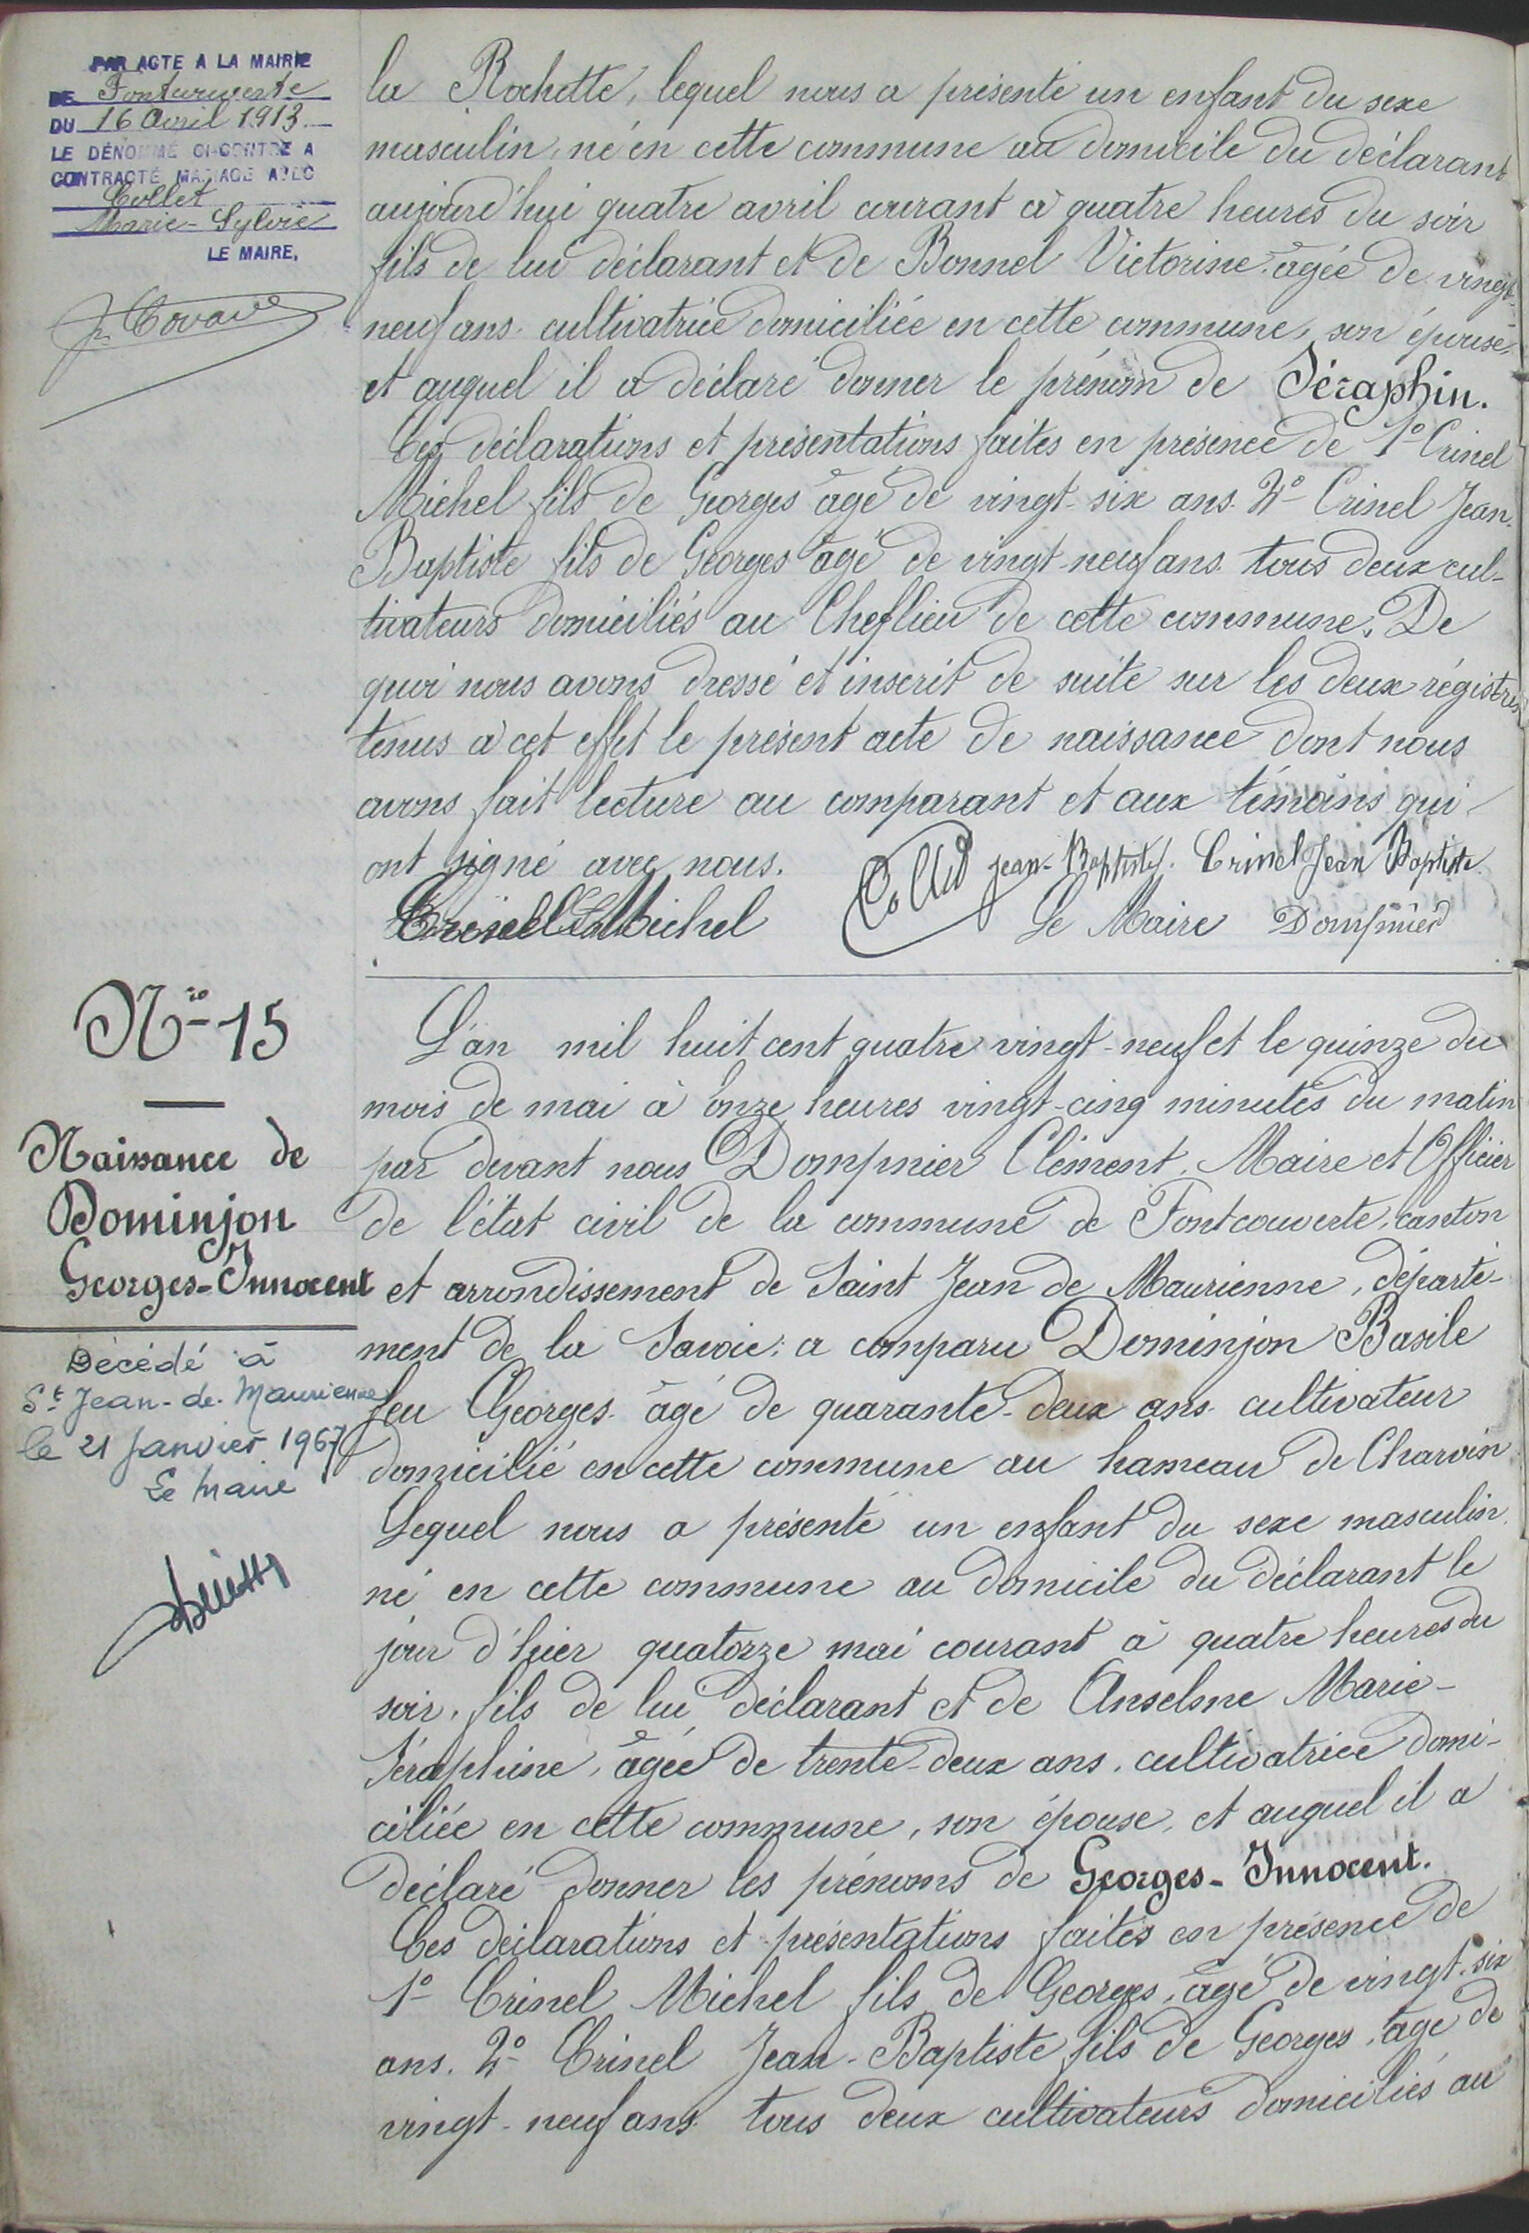 PAR ACTE A LA MAIRIE
DE Fontcouverte
DU 16 Avril 1913
LE DÉNOMMÉ CI-CONTRE A
CONTRACTÉ MARIAGE AVEC
Collet
Marie-Sylvie
LE MAIRE,
la Rochette, lequel nous a présenté un enfant du sexe
masculin, né en cette commune au domicile du déclarant
aujourd'hui quatre avril courant à quatre heures du soir
fils de lui déclarant et de Bonnel Victorine âgée de vingt-
neuf ans cultivatrice domiciliée en cette commune, son épouse,
et auquel il a déclaré donner le prénom de Séraphin.
Ces déclarations et présentations faites en présence de 1º Crinel
Michel fils de Georges âgé de vingt-six ans. 2º Crinel Jean-
Baptiste fils de Georges âgé de vingt-neuf ans tous deux cul-
tivateurs domiciliés au Cheflieu de cette commune. De
quoi nous avons dressé et inscrit de suite sur les deux régistres
tenus à cet effet le présent acte de naissance dont nous
avons fait lecture au comparant et aux témoins qui
ont signé avec nous.
Collet Jean-Baptiste. Crinel Jean Baptiste
Crinel Michel
Le Maire Dompnier
Nº 15
Naissance de
Dominjon
Georges-Innocent
Décédé à
St Jean-de-Maurienne
le 21 Janvier 1967
Le Maire
L'an mil huit cent quatre vingt-neuf et le quinze du
mois de mai à onze heures vingt-cinq minutes du matin
par devant nous Dompnier Clément, Maire et Officier
de l'état civil de la commune de Fontcouverte, canton
et arrondissement de Saint Jean de Maurienne, départe-
ment de la Savoie: a comparu Dominjon Basile
feu Georges âgé de quarante-deux ans cultivateur
domicilié en cette commune au hameau de Charvin
Lequel nous a présenté un enfant du sexe masculin
né en cette commune au domicile du déclarant le
jour d'hier quatorze mai courant à quatre heures du
soir, fils de lui déclarant et de Anselme Marie-
Séraphine, âgée de trente-deux ans, cultivatrice domi-
ciliée en cette commune, son épouse, et auquel il a
déclaré donner les prénoms de Georges-Innocent.
Ces déclarations et présentations faites en présence de
1º Crinel Michel fils de Georges, âgé de vingt-six
ans. 2º Crinel Jean-Baptiste fils de Georges, âgé de
vingt-neuf ans tous deux cultivateurs domiciliés au